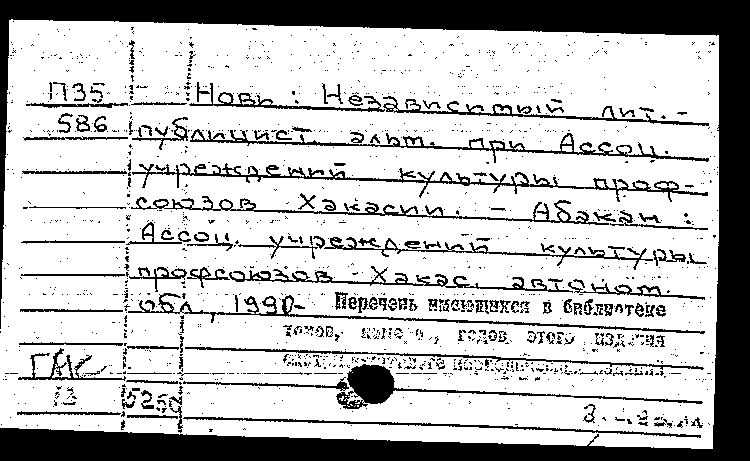 П35 Новь : Независимый лит.-
586 публицист. альм. при Ассоц.
учреждений культуры проф-
союзов Хакасии. - Абакан :
Ассоц. учреждений культуры
профсоюзов Хакас. автоном.
обл., 1990- Перечень имеющихся в библиотеке
томов, годов этого издания
13 5250